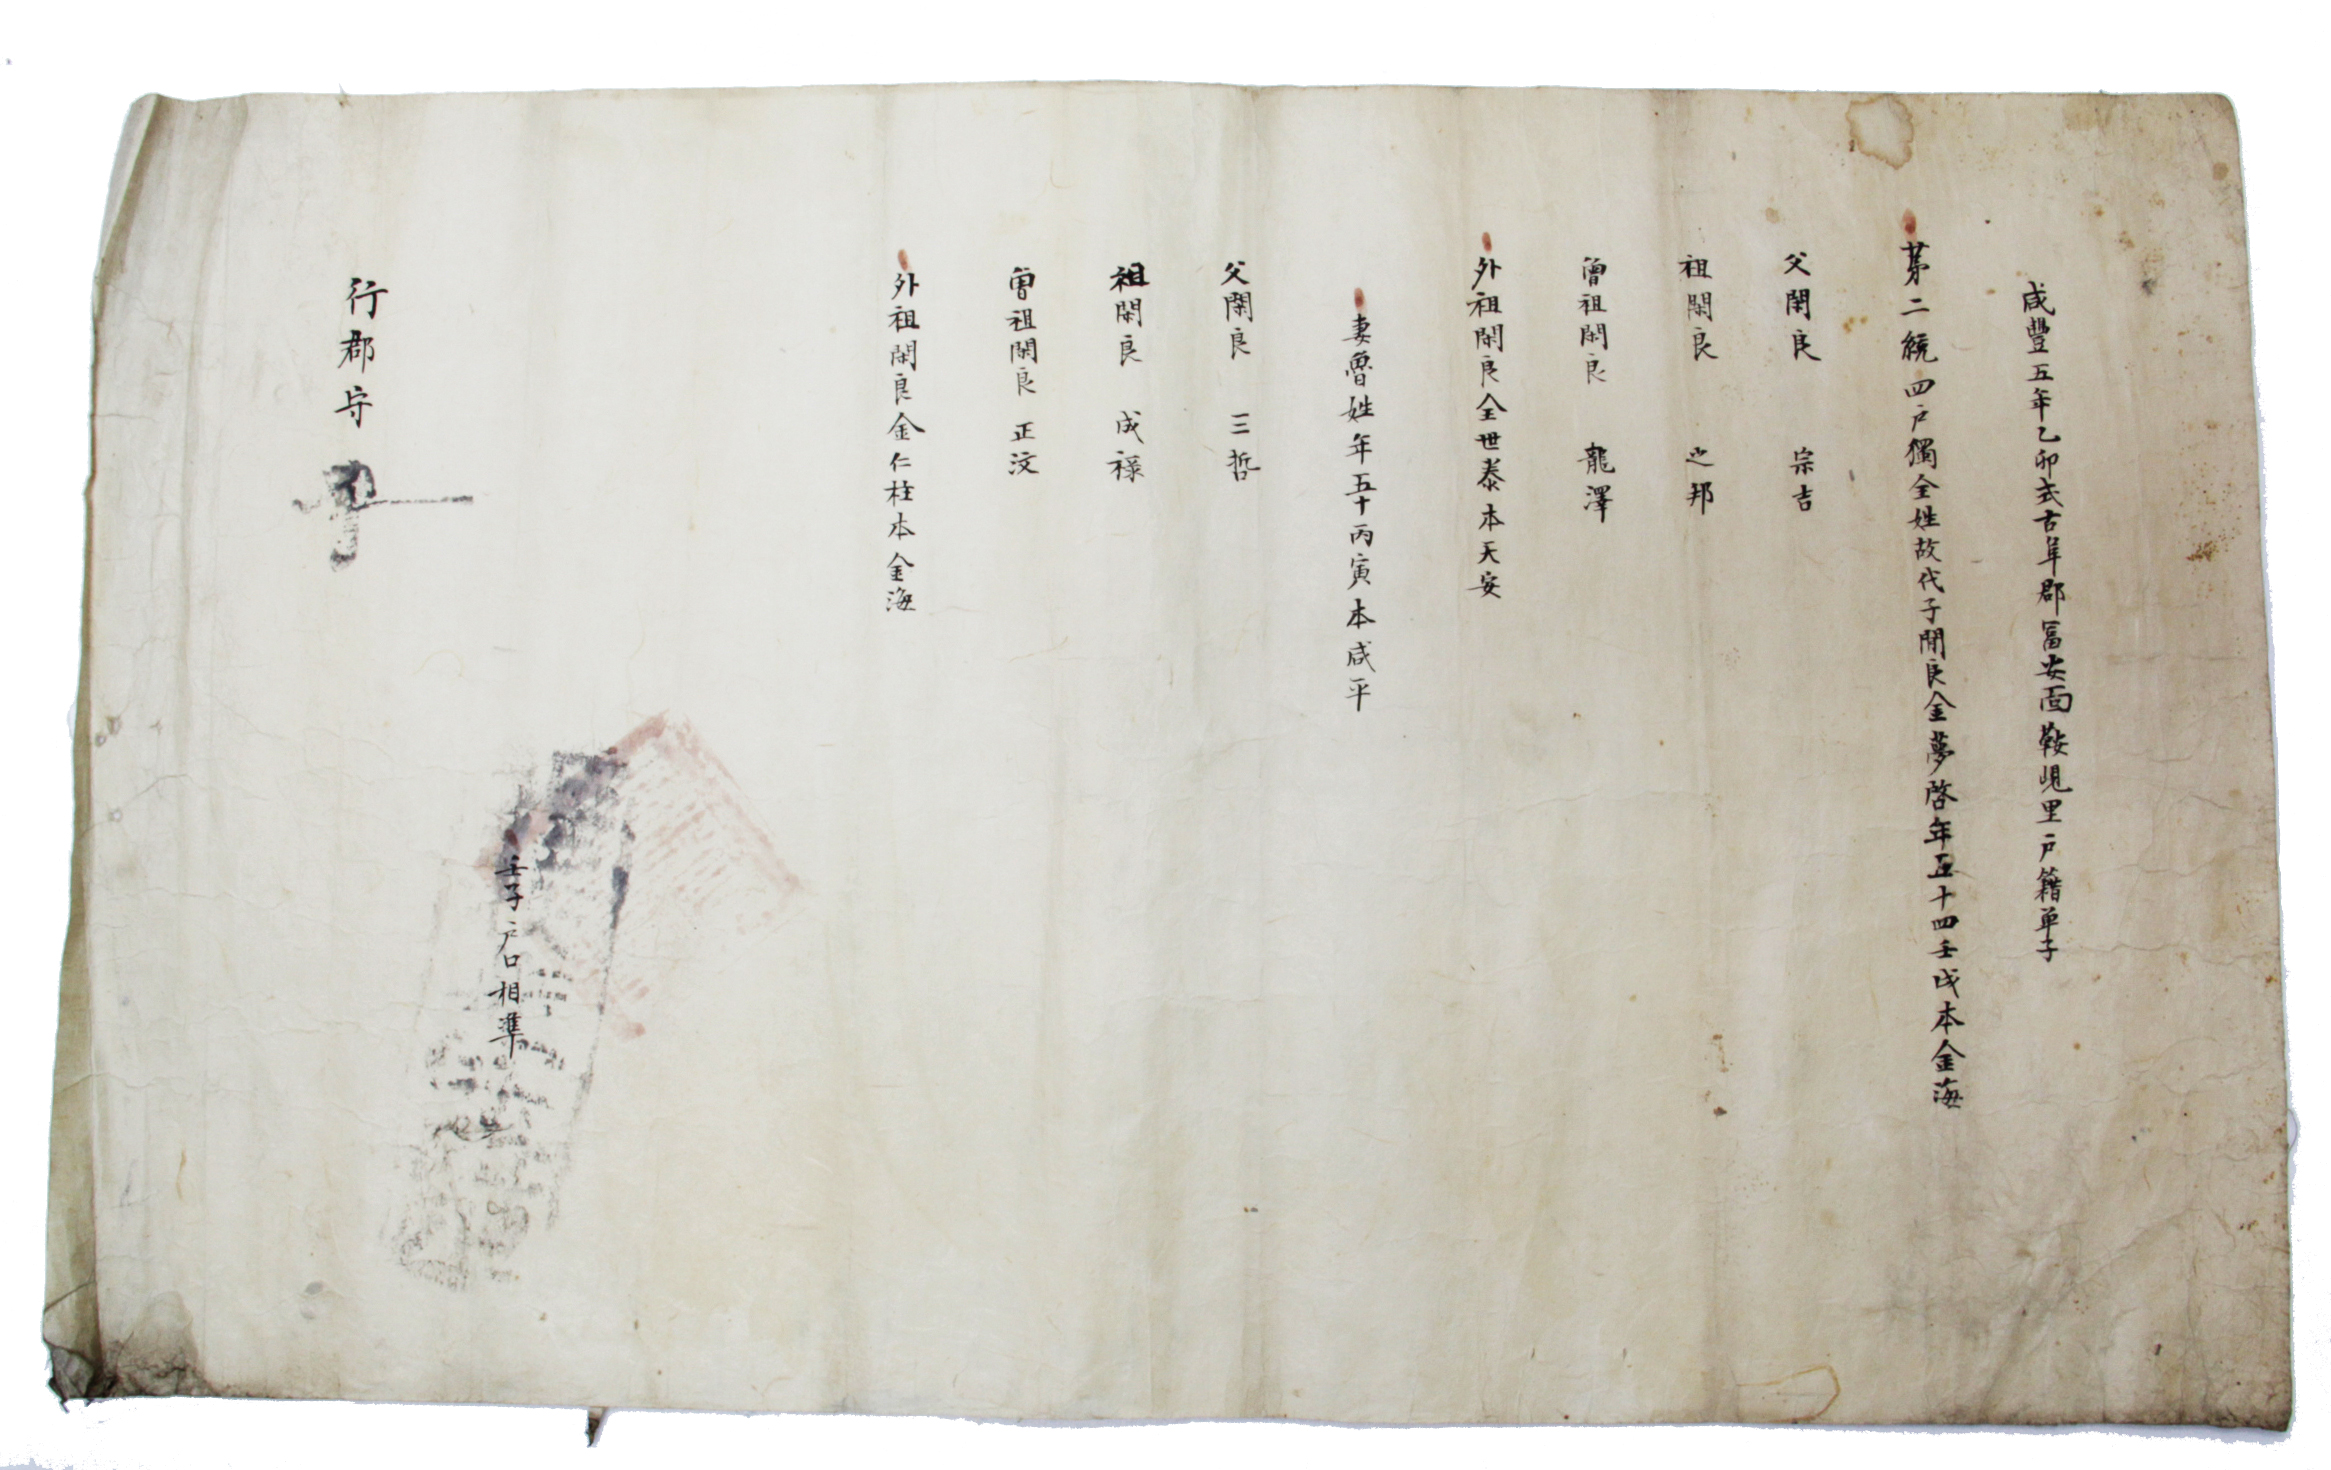 咸豐五年乙卯式古阜郡富安面鞍峴里戶籍單子
苐二統四戶獨全姓故代子閑良金夢啓年五十四壬戌本金海
父閑良 宗吉
祖閑良 之邦
曾祖閑良 龍澤
外祖閑良全世泰本天安
妻魯姓年五十丙寅本咸平
父閑良 三哲
祖閑良 成祿
曾祖閑良 正汶
外祖閑良金仁柱本金海
壬子戶口相準
行郡守